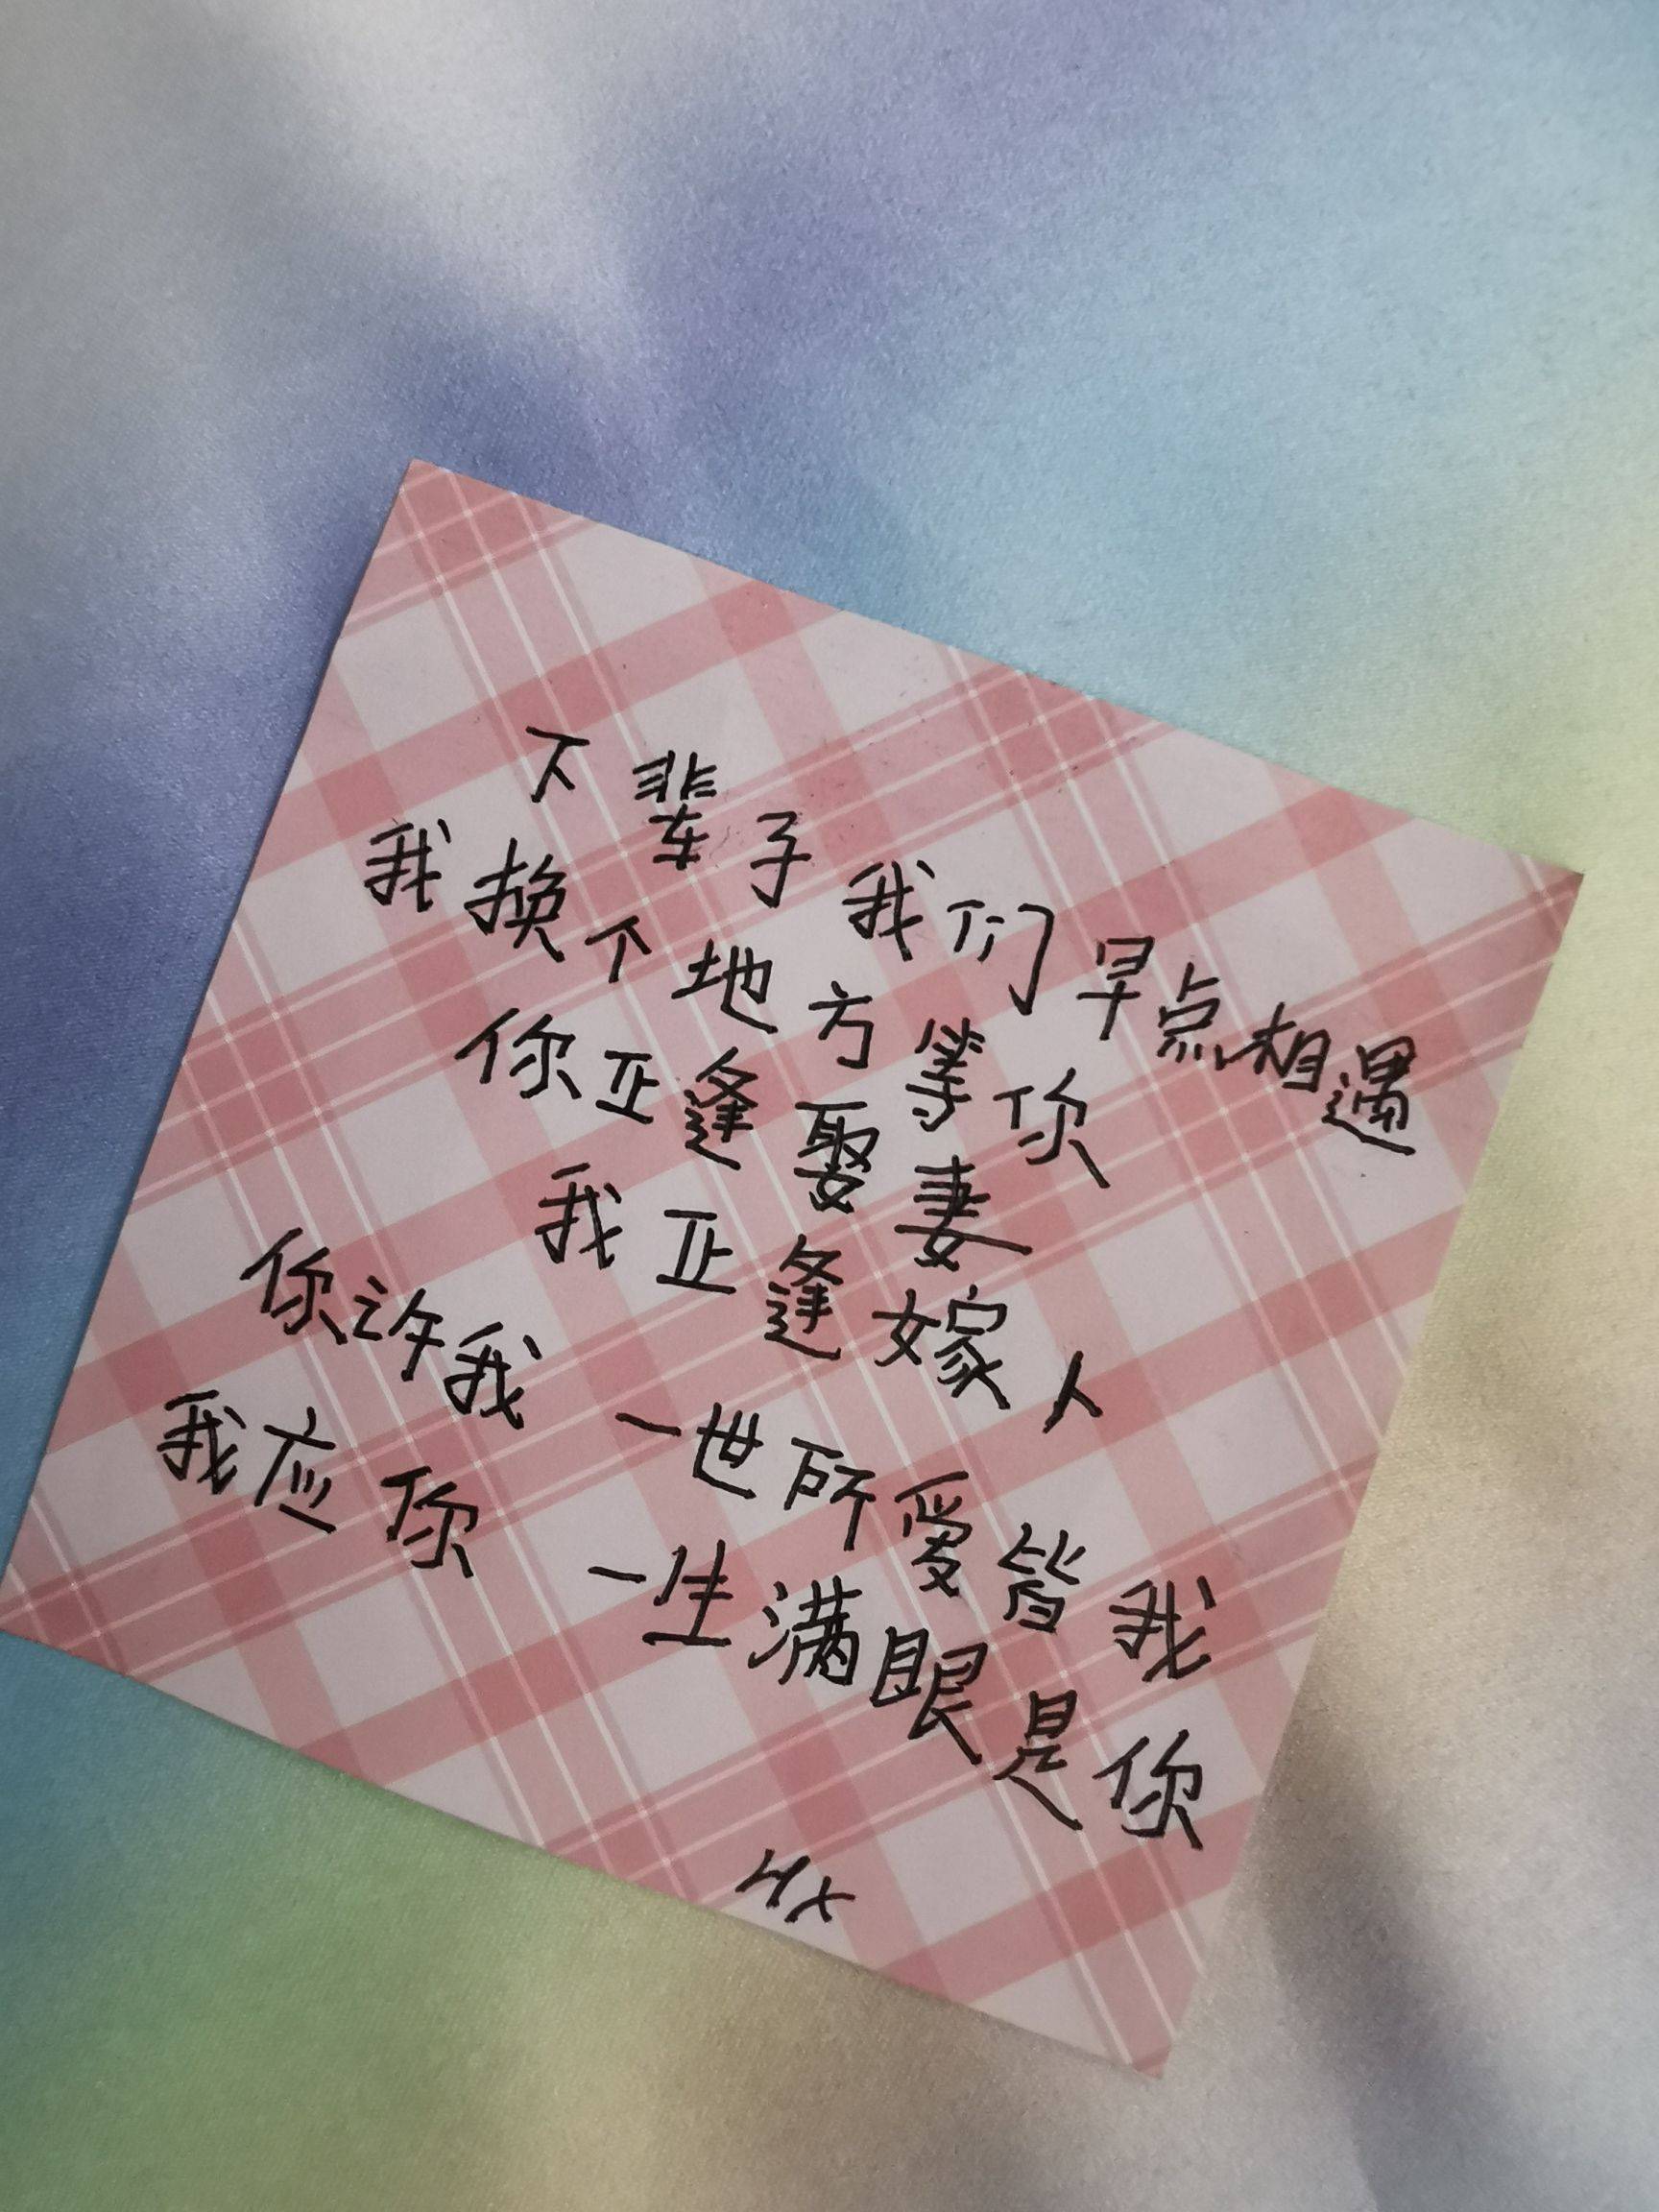 下辈子我们早点相遇
我换个地方等你
你正逢娶妻
我正逢嫁人
你许我 一世所爱皆我
我应你 一生满眼是你
Hx